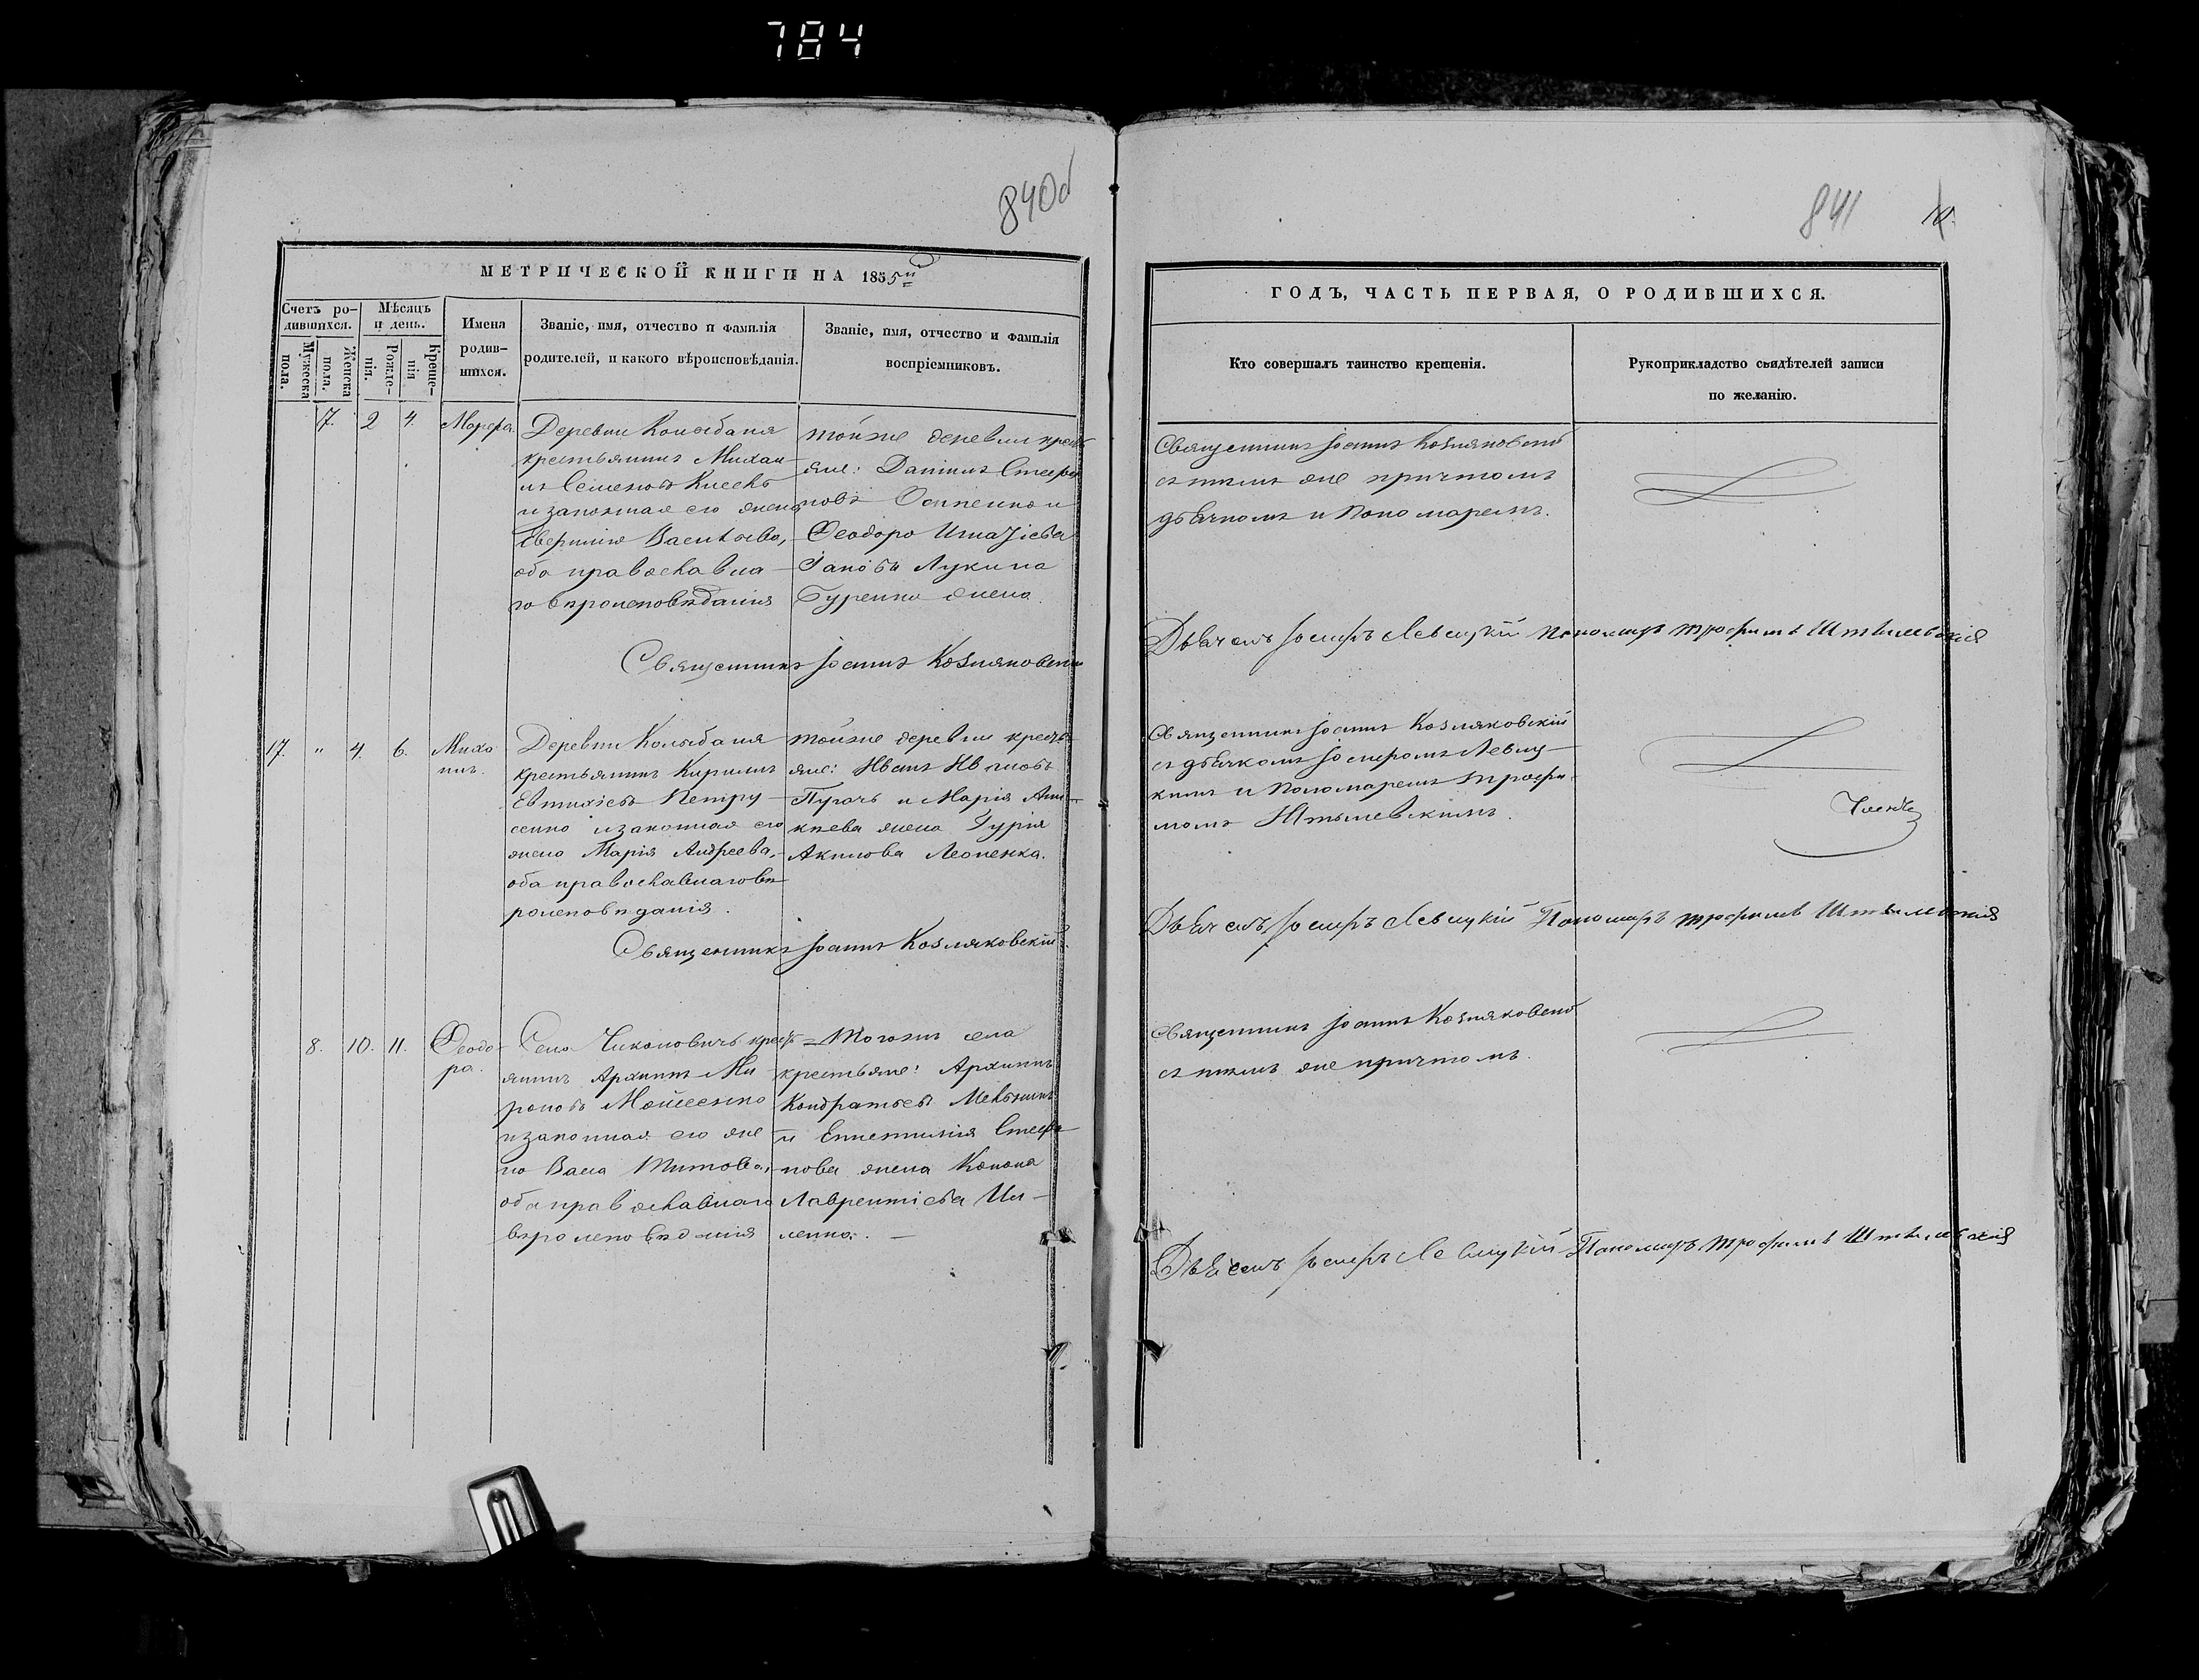 784
840об
МЕТРИЧЕСКОЙ КНИГИ НА 1855й
Счетъ ро-
дившихся.
Мужеска
пола.
Женска
пола.
Мѣсяцъ
и день.
Рожде-
нія.
Креще-
нія
Имена
родив-
шихся.
Званіе, имя, отчество и фамилія
родителей, и какого вѣроисповѣданія.
Званіе, имя, отчество и фамилія
воспріемниковъ.
7. 2 4.
Деревни
крестьянинъ Михаи-
лъ Семеновъ
и законная его жена
оба православна-
го вѣроисповѣданія
тойже деревни кресть
яне: Даніилъ Стефа
новъ Осипенко и
Феодора
Іакова Лукина
Гуренка жена
Священникъ Іоаннъ Козляковскій
17. " 4. 6.
Деревни
крестьянинъ Кирилъ
Евтихіевъ Петру-
сенко и законная его
жена Марія Андреева,
оба православнаго вѣ
роисповѣданія.
тойже деревни кресть
яне: Иванъ Ивановъ
Пугачъ и Марія
жена Гурія
Акимова
Священникъ Іоаннъ Козляковскій.
8. 10. 11.
Феодо-
ра.
Села Чиколовичъ кресть
янинъ Архипъ Ми-
роновъ Моисеенко
и законная его же-
на Васса Титова,
оба православнаго
вѣроисповѣданія
Тогожъ села
крестьяне: Архипъ
Кондратьевъ
и Стефа
нова жена Конона
Лаврентіева
841
ГОДЪ, ЧАСТЬ ПЕРВАЯ, О РОДИВШИХСЯ.
Кто совершалъ таинство крещенія.
Рукоприкладство свидѣтелей записи
по желанію.
Священникъ Іоаннъ Козляковскій
съ тѣмъ же причтомъ
дьячкомъ и пономаремъ.
Дьячекъ Іосифъ Левицкій Пономарь Трофимъ
Священникъ Іоаннъ Козляковскій
съ дьячкомъ Іосифомъ Левиц-
кимъ и пономаремъ Трофи-
момъ
Дьячекъ Іосифъ Левицкій Пономарь Трофимъ
Священникъ Іоаннъ Козляковскій
съ тѣмъ же причтомъ.
Дьячекъ Іосифъ Левицкій Пономарь Трофимъ